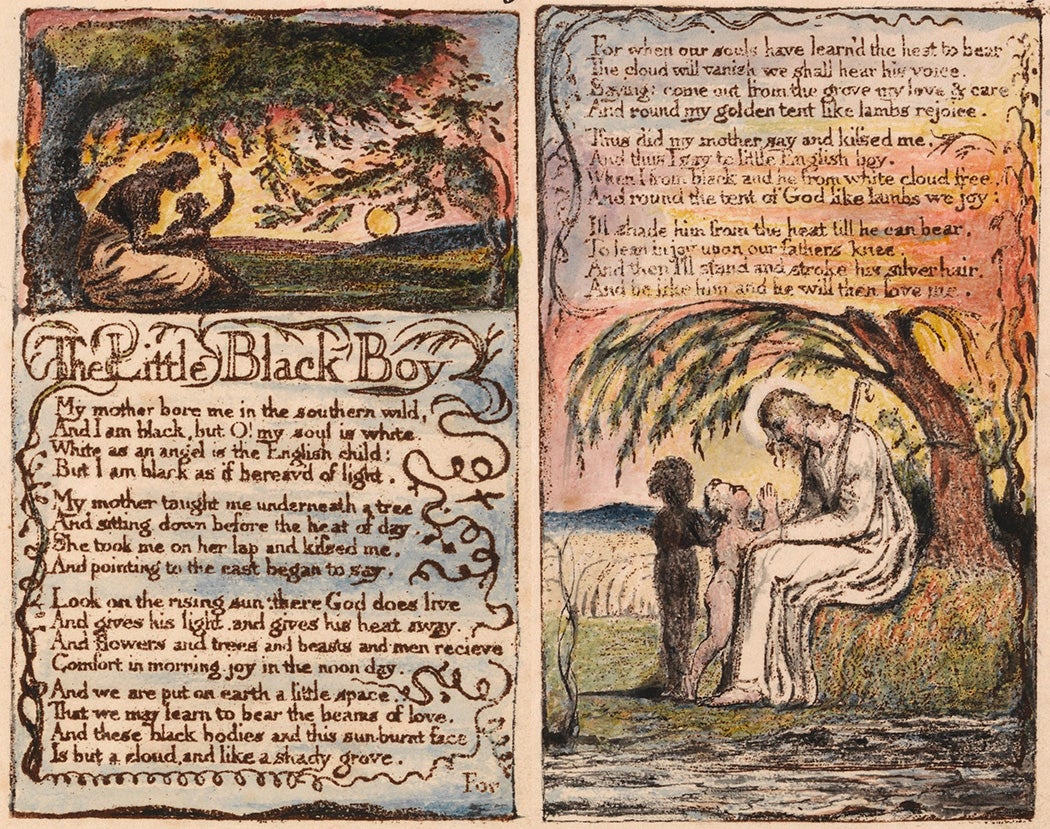 The Little Black Boy
My mother bore me in the southern wild,
And I am black, but O! my soul is white.
White as an angel is the English child:
But I am black as if bereav'd of light.
My mother taught me underneath a tree
And sitting down before the heat of day.
She took me on her lap and kissed me,
And pointing to the east began to say.
Look on the rising sun: there God does live
And gives his light, and gives his heat away.
And flowers and trees and beasts and men recieve
Comfort in morning joy in the noon day.
And we are put on earth a little space
That we may learn to bear the beams of love.
And these black bodies and this sun-burnt face
Is but a cloud, and like a shady grove.
For
For when our souls have learn'd the heat to bear
The cloud will vanish we shall hear his voice.
Saying: come out from the grove my love & care
And round my golden tent like lambs rejoice.
Thus did my mother say and kissed me,
And thus I say to little English boy.
When I from black and he from white cloud free,
And round the tent of God like lambs we joy:
Ill shade him from the heat till he can bear,
To lean in joy upon our fathers knee
And then I'll stand and stroke his silver hair,
And be like him and he will then love me.